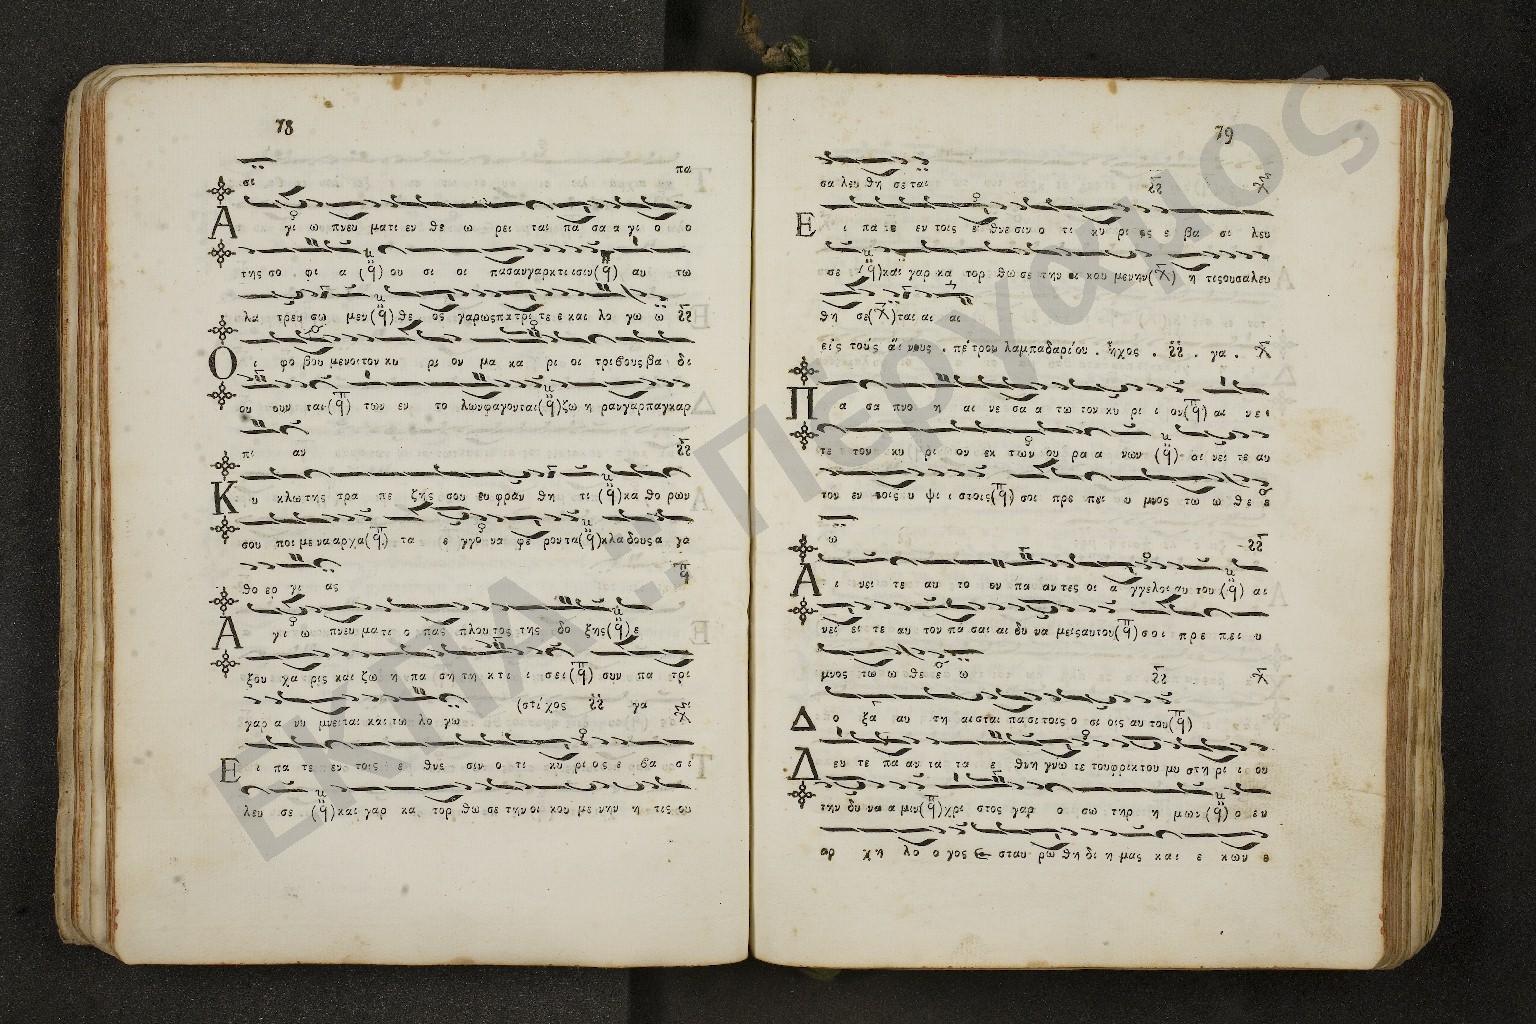 78
πα
σι
Α γι ω πνευ ματι εν θε ω ρει ται πα σα α γι ο ο
της σο φι α (q̈) ου σι οι πασανγαρκτιισιν(q̈) αυ τω
λα τρευ σω μεν(q̈)θε ος γαρωςπατρι τε ε και λο γω ω
Ο ι φο βου μενοιτονκυ ρι ον μα κα ρι οι τριβουςβα δι
ου ουν ται(q̈) των εν το λωνφαγονται(q̈)ζω η ρανγαρπαγκαρ
πι αν
Κ υ κλωτης τρα πε ζης σου ευφραν θη τι (q̈)καθορων
σου ποιμεναρχα(q̈) τα ε γγο να φε ρον τα(q̈)κλαδουςα γα
θο ερ γι ας
Α γι ω πνευ ματι ο πας πλουτος της δο ξης(q̈) ε
ξου χα ρις και ζω η πα ση τη κ τι ι σει(q̈) συν πα τρι
γαρ α νυ μνειται και τω λο γω (στίχος γα
Ε ι πα τε εν τοις ε θνε σιν ο τι κυ ρι ο ς ε βα σι
λευ σε (q̈)και γαρ κα τορ θω σε την οι κου με νην η τις ου
79
σα λευ θη σε ται
Ε ι πα τε εν τοις ε θνε σιν ο τι κυ ρι ος ε βα σι λευ
σε (q̈)και γαρ κα τορ θω σε την οι κου μενην η τις ου σα λευ
θη σε ται αι αι
εἰς τοὺς αἴνους . πέτρου λαμπαδαρίου . ἦχος . γα .
Π α σα πνο η αι νε σα α τω τον κυ ρι ι ον(q̈) αι νε ι
τε τον κυ ρι ον εκ των ου ρα α νων (q̈) αι νει τε αυ
τον εν τοις υ ψι ι στοις(q̈) σοι πρε πει υ μνος τω ω θε ε
ω
Α ι νει τε αυ το ον πα αντες οι α γγελοι αυ του(q̈) αι
νει ει τε αυ τον πα σαι αι δυ να μεις αυτου(q̈) σοι πρε πει υ
μνος τω ω θε ε ω
Δ ο ξα αυ τη αισται πασι τοις ο σι οις αυ του(q̈)
Δ ευ τε πα αν τα τα ε θνη γνω τε τουφρικτου μυ στη ρι ι ου
την δυ να α μιν(q̈)χρι στος γαρ ο σω τηρ η μων(q̈) ο εν
αρ χη λο ο γος ε σταυ ρω θη δι η μας και ε κων ε
ΕΚΠΑ.. Περγαμος